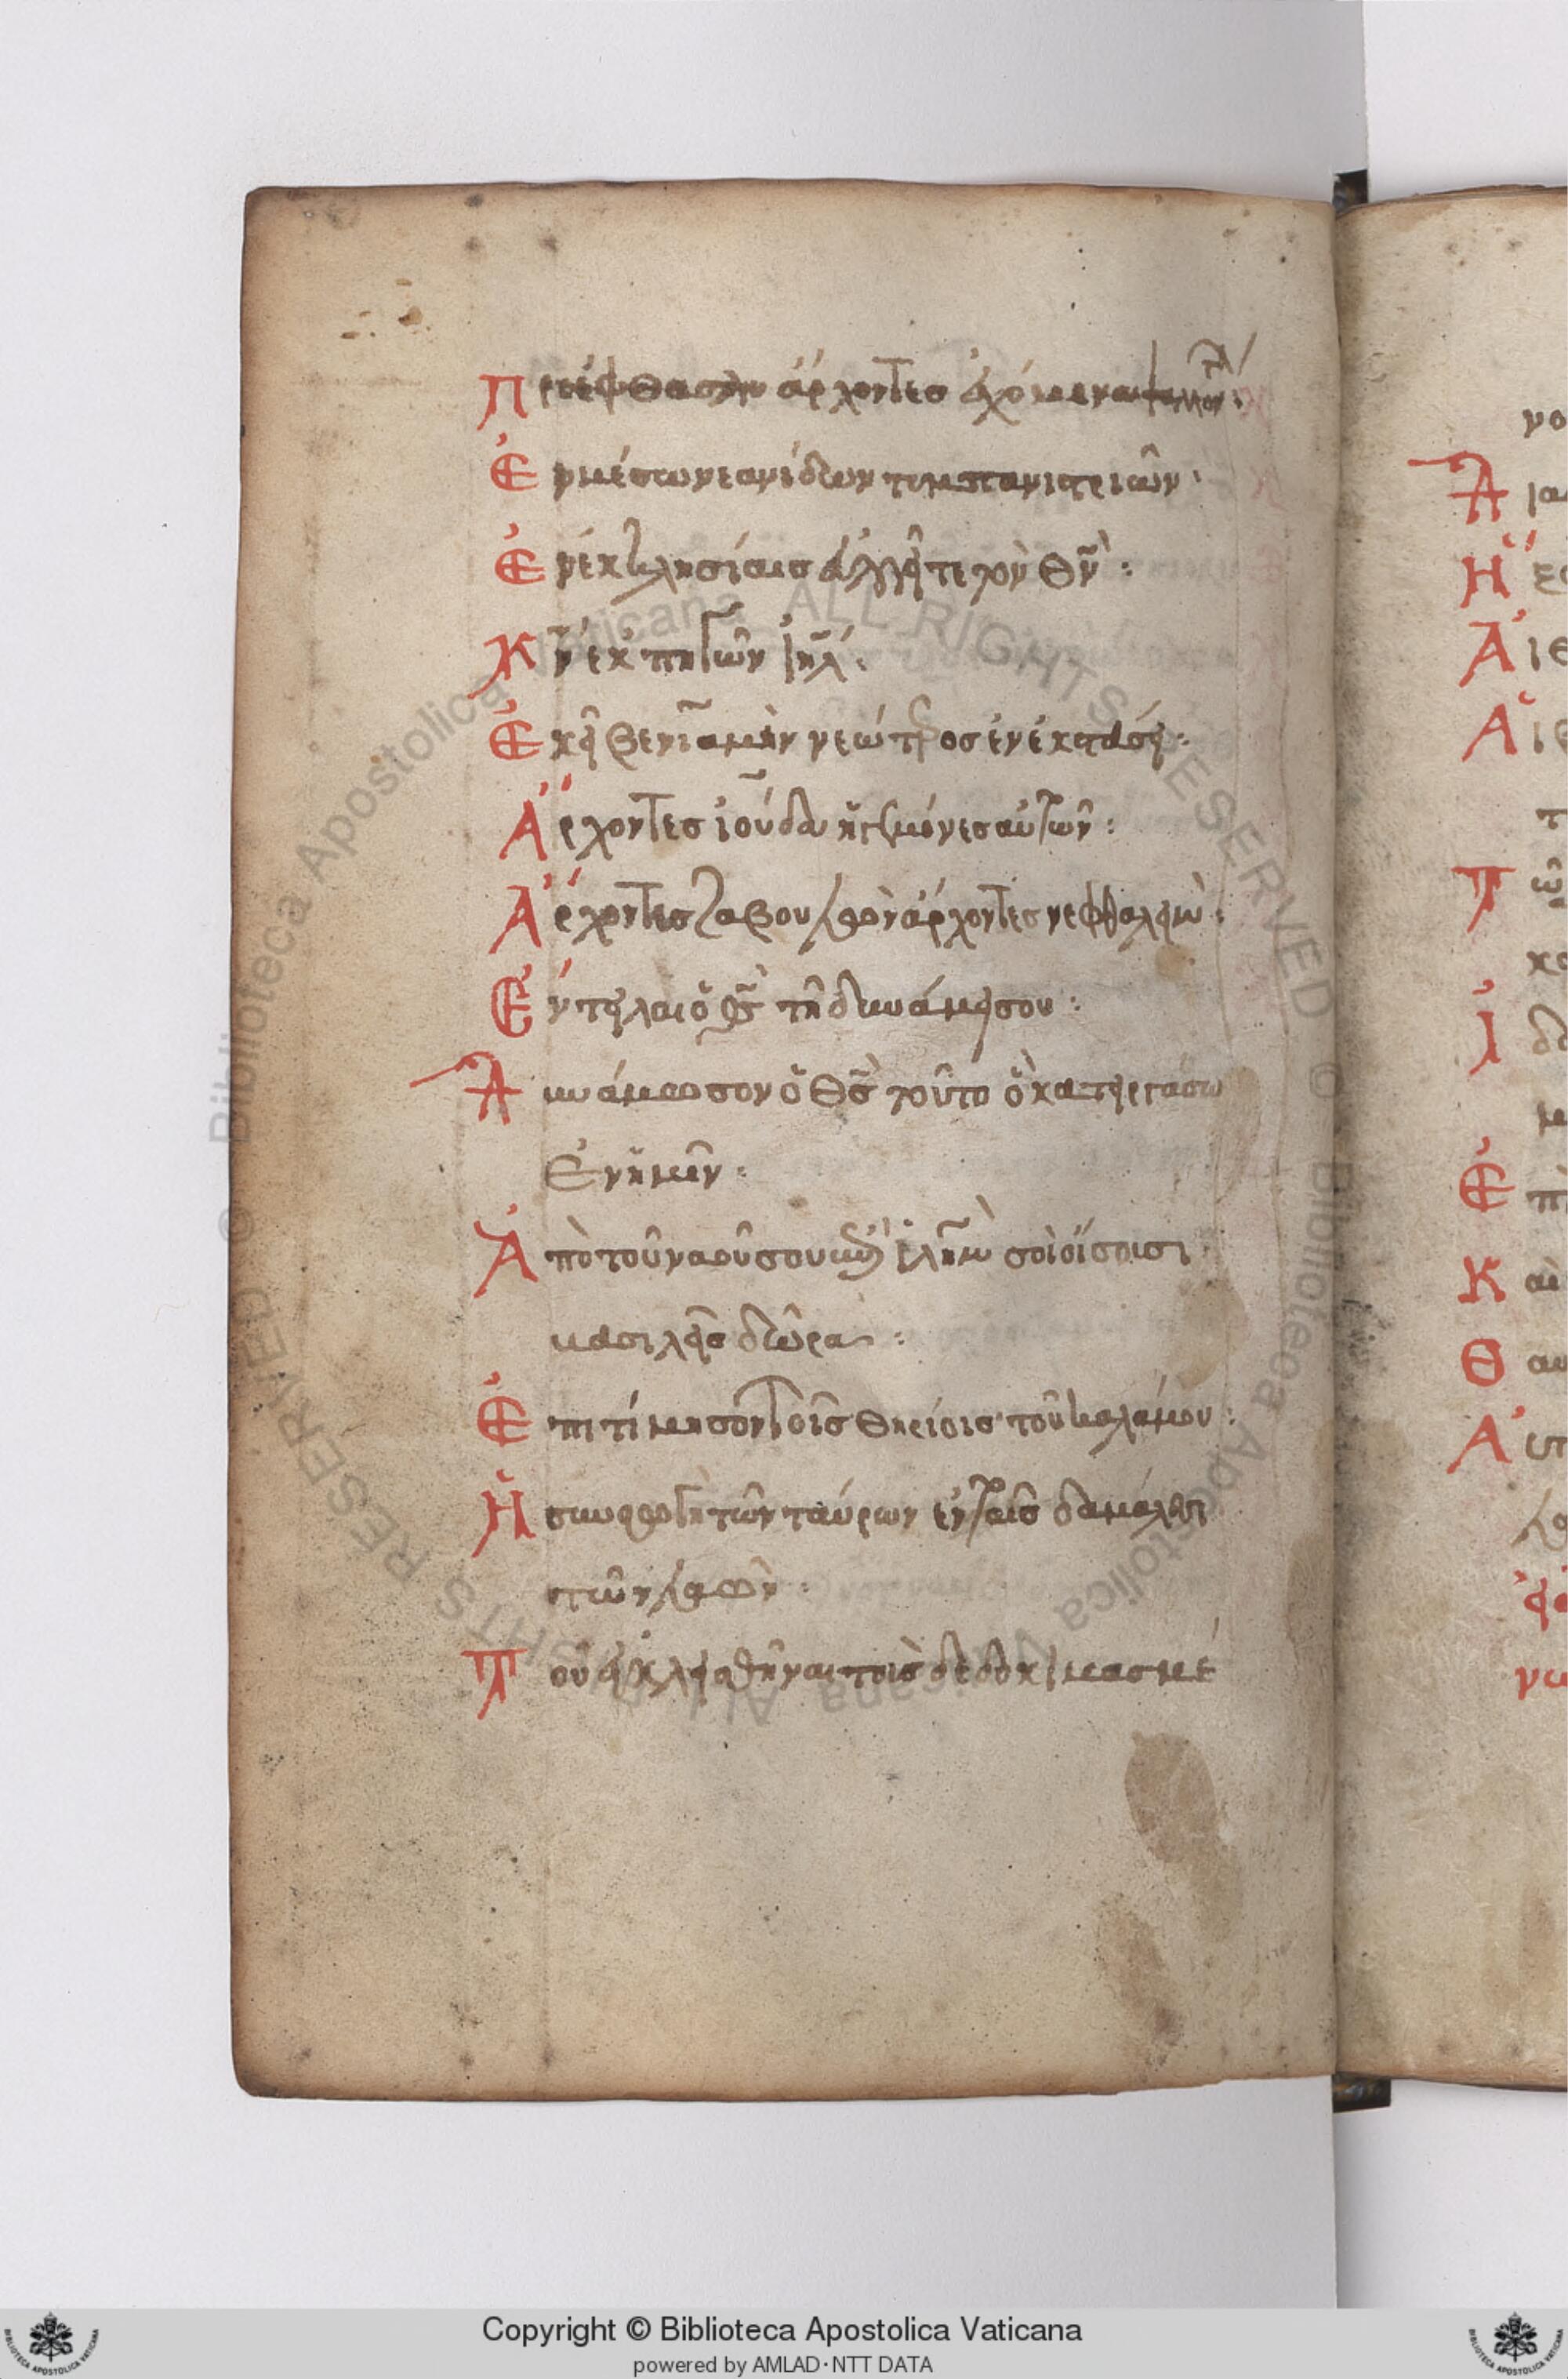 Προέφθασαν ἄρχοντες ἐχόμενοι ψαλλόντων :
Ἐν μέσω νεανίδων τυμπανιστριῶν ·
Ἐν ἐκκλησίαις εὐλογεῖτε τὸν θν :
Κν ἐκ πηγῶν ιηλ :
Ἐκεῖ βενιαμὴν νεώτερος ἐν ἐκστάσει :
Ἄρχοντες ἰούδα ἡγεμόνες αὐτῶν :
Ἄρχοντες ζαβουλὼν ἄρχοντες νεφθαλείμ :
Ἔντειλαι ὁ θς τῆ δυνάμει σου :
Δυνάμωσον ὁ θς τοῦτο ὃ κατειργάσω
Ἐν ἡμῖν :
Ἀπὸ τοῦ ναοῦ σου ἐπὶ ιλημ σοὶ οἴσουσι
βασιλεῖς δῶρα :
Ἐπιτίμησον τοῖς θηρίοις τοῦ καλάμου :
Ἡ συναγωγὴ τῶν ταύρων ἐν ταῖς δαμάλεσι
τῶν λαῶν :
Τοῦ ἐκκλεισθῆναι τοὺς δεδοκιμασμέ
νο
Α
Η
Α ιε
Α ιε
Τ
Ι
Ἐ πὶ
Κ αὶ
Θ αυ
Α
νω
Copyright © Biblioteca Apostolica Vaticana
powered by AMLAD·NTT DATA